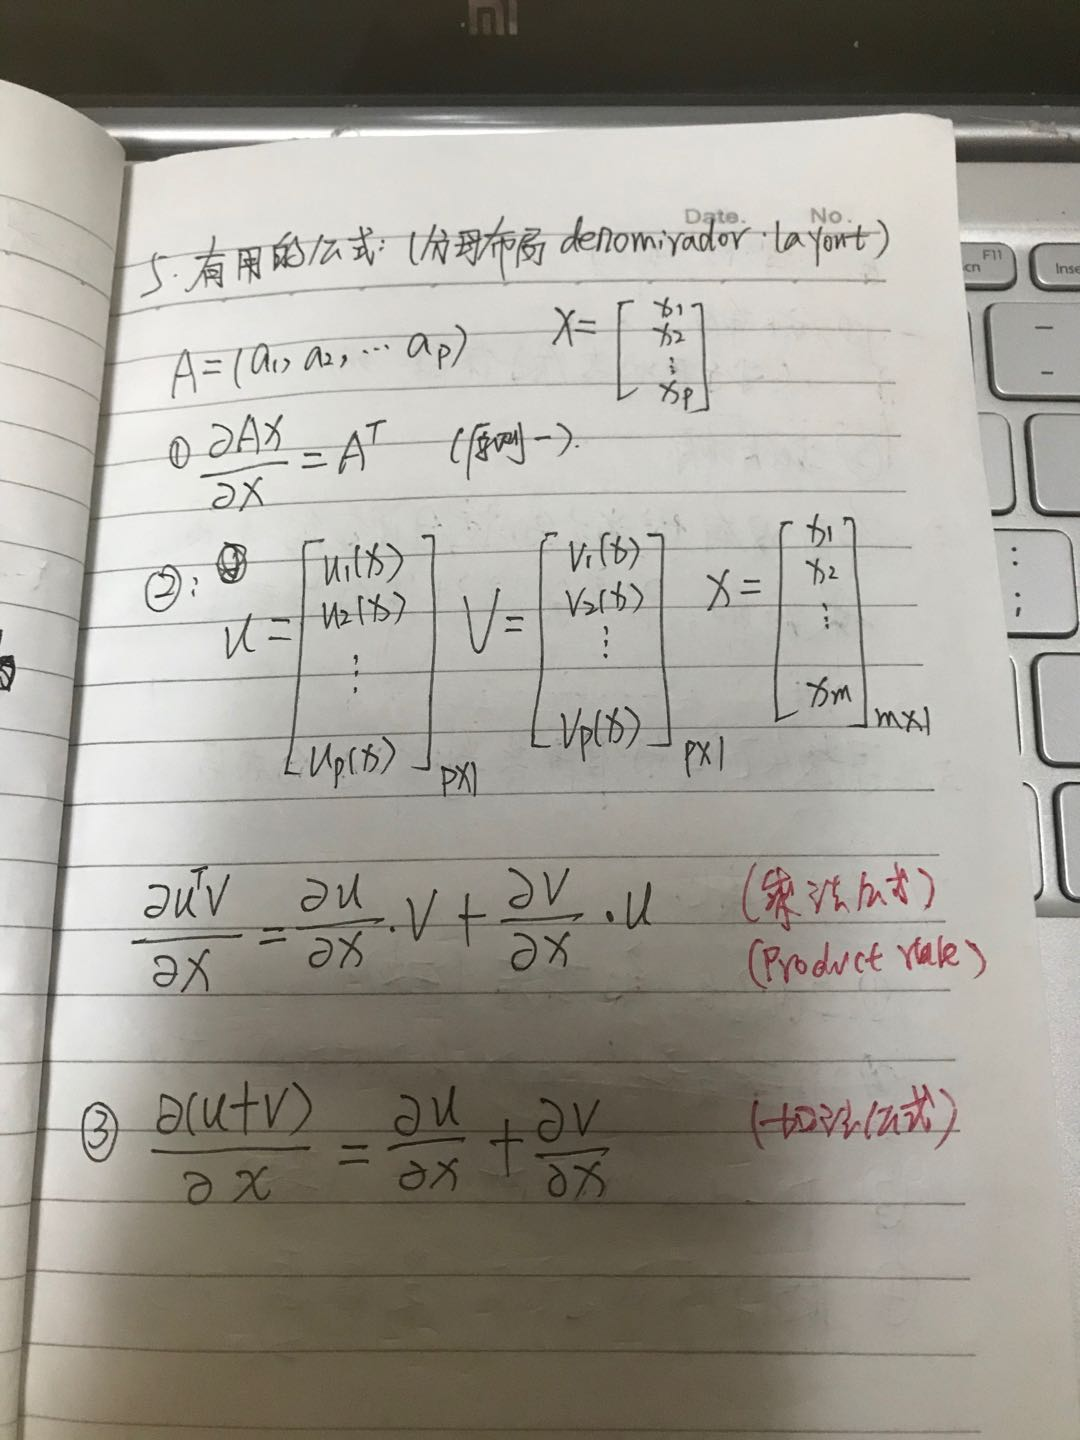 mi
Date. No.
5. 有用的公式: (分母布局 denomirador layout)
A=(a₁, a₂, ⋯ aₚ) X= [x₁ x₂ ⋮ xₚ]
① ∂AX/∂X = Aᵀ (原则一).
②: u= [u₁(x) u₂(x) ⋮ uₚ(x)]p×1 V= [V₁(x) V₂(x) ⋮ Vₚ(x)]p×1 X= [x₁ x₂ ⋮ xm]m×1
∂uᵀV/∂X = ∂u/∂X · V + ∂V/∂X · u (乘法公式)
(Product rule)
③ ∂(u+V)/∂X = ∂u/∂X + ∂V/∂X (加法公式)
F11
cn
Inse
:
;